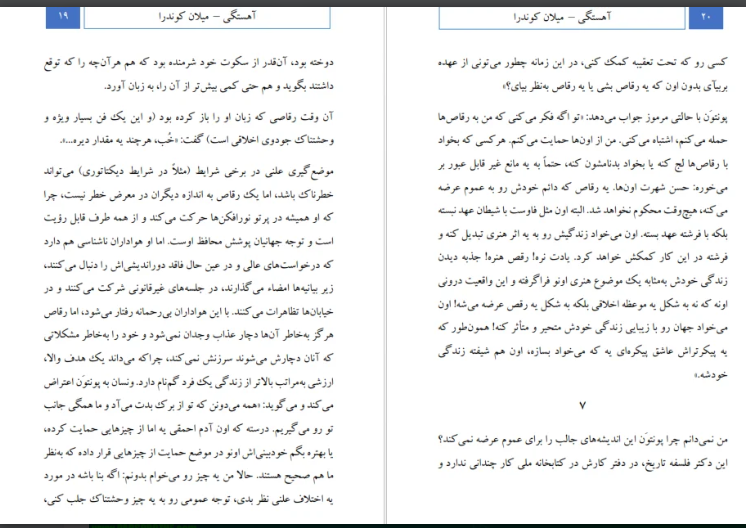 آهستگی – میلان کوندرا
۱۹
دوخته بود، آن‌قدر از سکوت خود شرمنده بود که هم هرآن‌چه را که توقع
داشتند بگوید و هم حتی کمی بیش‌تر از آن را، به زبان آورد.
آن وقت رقاصی که زبان او را باز کرده بود (و این یک فن بسیار ویژه و
وحشتناک جودوی اخلاقی است) گفت: «خُب، هرچند یه مقدار دیره...».
موضع‌گیری علنی در برخی شرایط (مثلاً در شرایط دیکتاتوری) می‌تواند
خطرناک باشد، اما یک رقاص به اندازه دیگران در معرض خطر نیست، چرا
که او همیشه در پرتو نورافکن‌ها حرکت می‌کند و از همه طرف قابل رؤیت
است و توجه جهانیان پوشش محافظ اوست. اما او هواداران ناشناسی هم دارد
که درخواست‌های عالی و در عین حال فاقد دوراندیشی‌اش را دنبال می‌کنند،
زیر بیانیه‌ها امضاء می‌گذارند، در جلسه‌های غیرقانونی شرکت می‌کنند و در
خیابان‌ها تظاهرات می‌کنند. با این هواداران بی‌رحمانه رفتار می‌شود، اما رقاص
هرگز به‌خاطر آن‌ها دچار عذاب وجدان نمی‌شود و خود را به‌خاطر مشکلاتی
که آنان دچارش می‌شوند سرزنش نمی‌کند، چراکه می‌داند یک هدف والا،
ارزشی به‌مراتب بالاتر از زندگی یک فرد گم‌نام دارد. ونسان به پونتوَن اعتراض
می‌کند و می‌گوید: «همه می‌دونن که تو از برک بدت می‌آد و ما همگی جانب
تو رو می‌گیریم. درسته که اون آدم احمقی یه اما از چیزهایی حمایت کرده،
یا بهتره بگم خودبینی‌اش اونو در موضع حمایت از چیزهایی قرار داده که به‌نظر
ما هم صحیح هستند. حالا من یه چیز رو می‌خوام بدونم: اگه بنا باشه در مورد
یه اختلاف علنی نظر بدی، توجه عمومی رو به یه چیز وحشتناک جلب کنی،
آهستگی – میلان کوندرا
۲۰
کسی رو که تحت تعقیبه کمک کنی، در این زمانه چطور می‌تونی از عهده
بربیآی بدون اون که یه رقاص بشی یا یه رقاص به‌نظر بیای؟»
پونتوَن با حالتی مرموز جواب می‌دهد: «تو اگه فکر می‌کنی که من به رقاص‌ها
حمله می‌کنم، اشتباه می‌کنی. من از اون‌ها حمایت می‌کنم. هرکسی که بخواد
با رقاص‌ها لج کنه یا بخواد بدنامشون کنه، حتماً به یه مانع غیر قابل عبور بر
می‌خوره: حسن شهرت اون‌ها. یه رقاص که دائم خودش رو به عموم عرضه
می‌کنه، هیچ‌وقت محکوم نخواهد شد. البته اون مثل فاوست با شیطان عهد نبسته
بلکه با فرشته عهد بسته. اون می‌خواد زندگیش رو به یه اثر هنری تبدیل کنه و
فرشته در این کار کمکش خواهد کرد. یادت نره! رقص هنره! جذبه دیدن
زندگی خودش به‌مثابه یک موضوع هنری اونو فراگرفته و این واقعیت درونی
اونه که نه به شکل یه موعظه اخلاقی بلکه به شکل یه رقص عرضه می‌شه! اون
می‌خواد جهان رو با زیبایی زندگی خودش متحیر و متأثر کنه! همون‌طور که
یه پیکرتراش عاشق پیکره‌ای یه که می‌خواد بسازه، اون هم شیفته زندگی
خودشه.»
۷
من نمی‌دانم چرا پونتوَن این اندیشه‌های جالب را برای عموم عرضه نمی‌کند؟
این دکتر فلسفه تاریخ، در دفتر کارش در کتابخانه ملی کار چندانی ندارد و